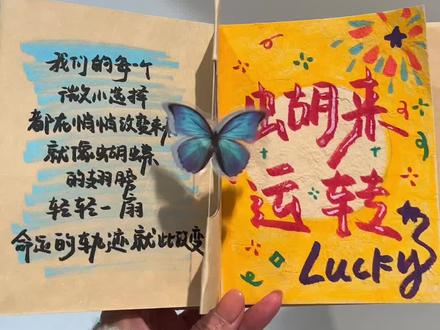 我们的每一个
微小选择
都在悄悄改变利
就像蝴蝶
的翅膀
轻轻一扇
命运的轨迹就此改变
蝴来
运转
Lucky